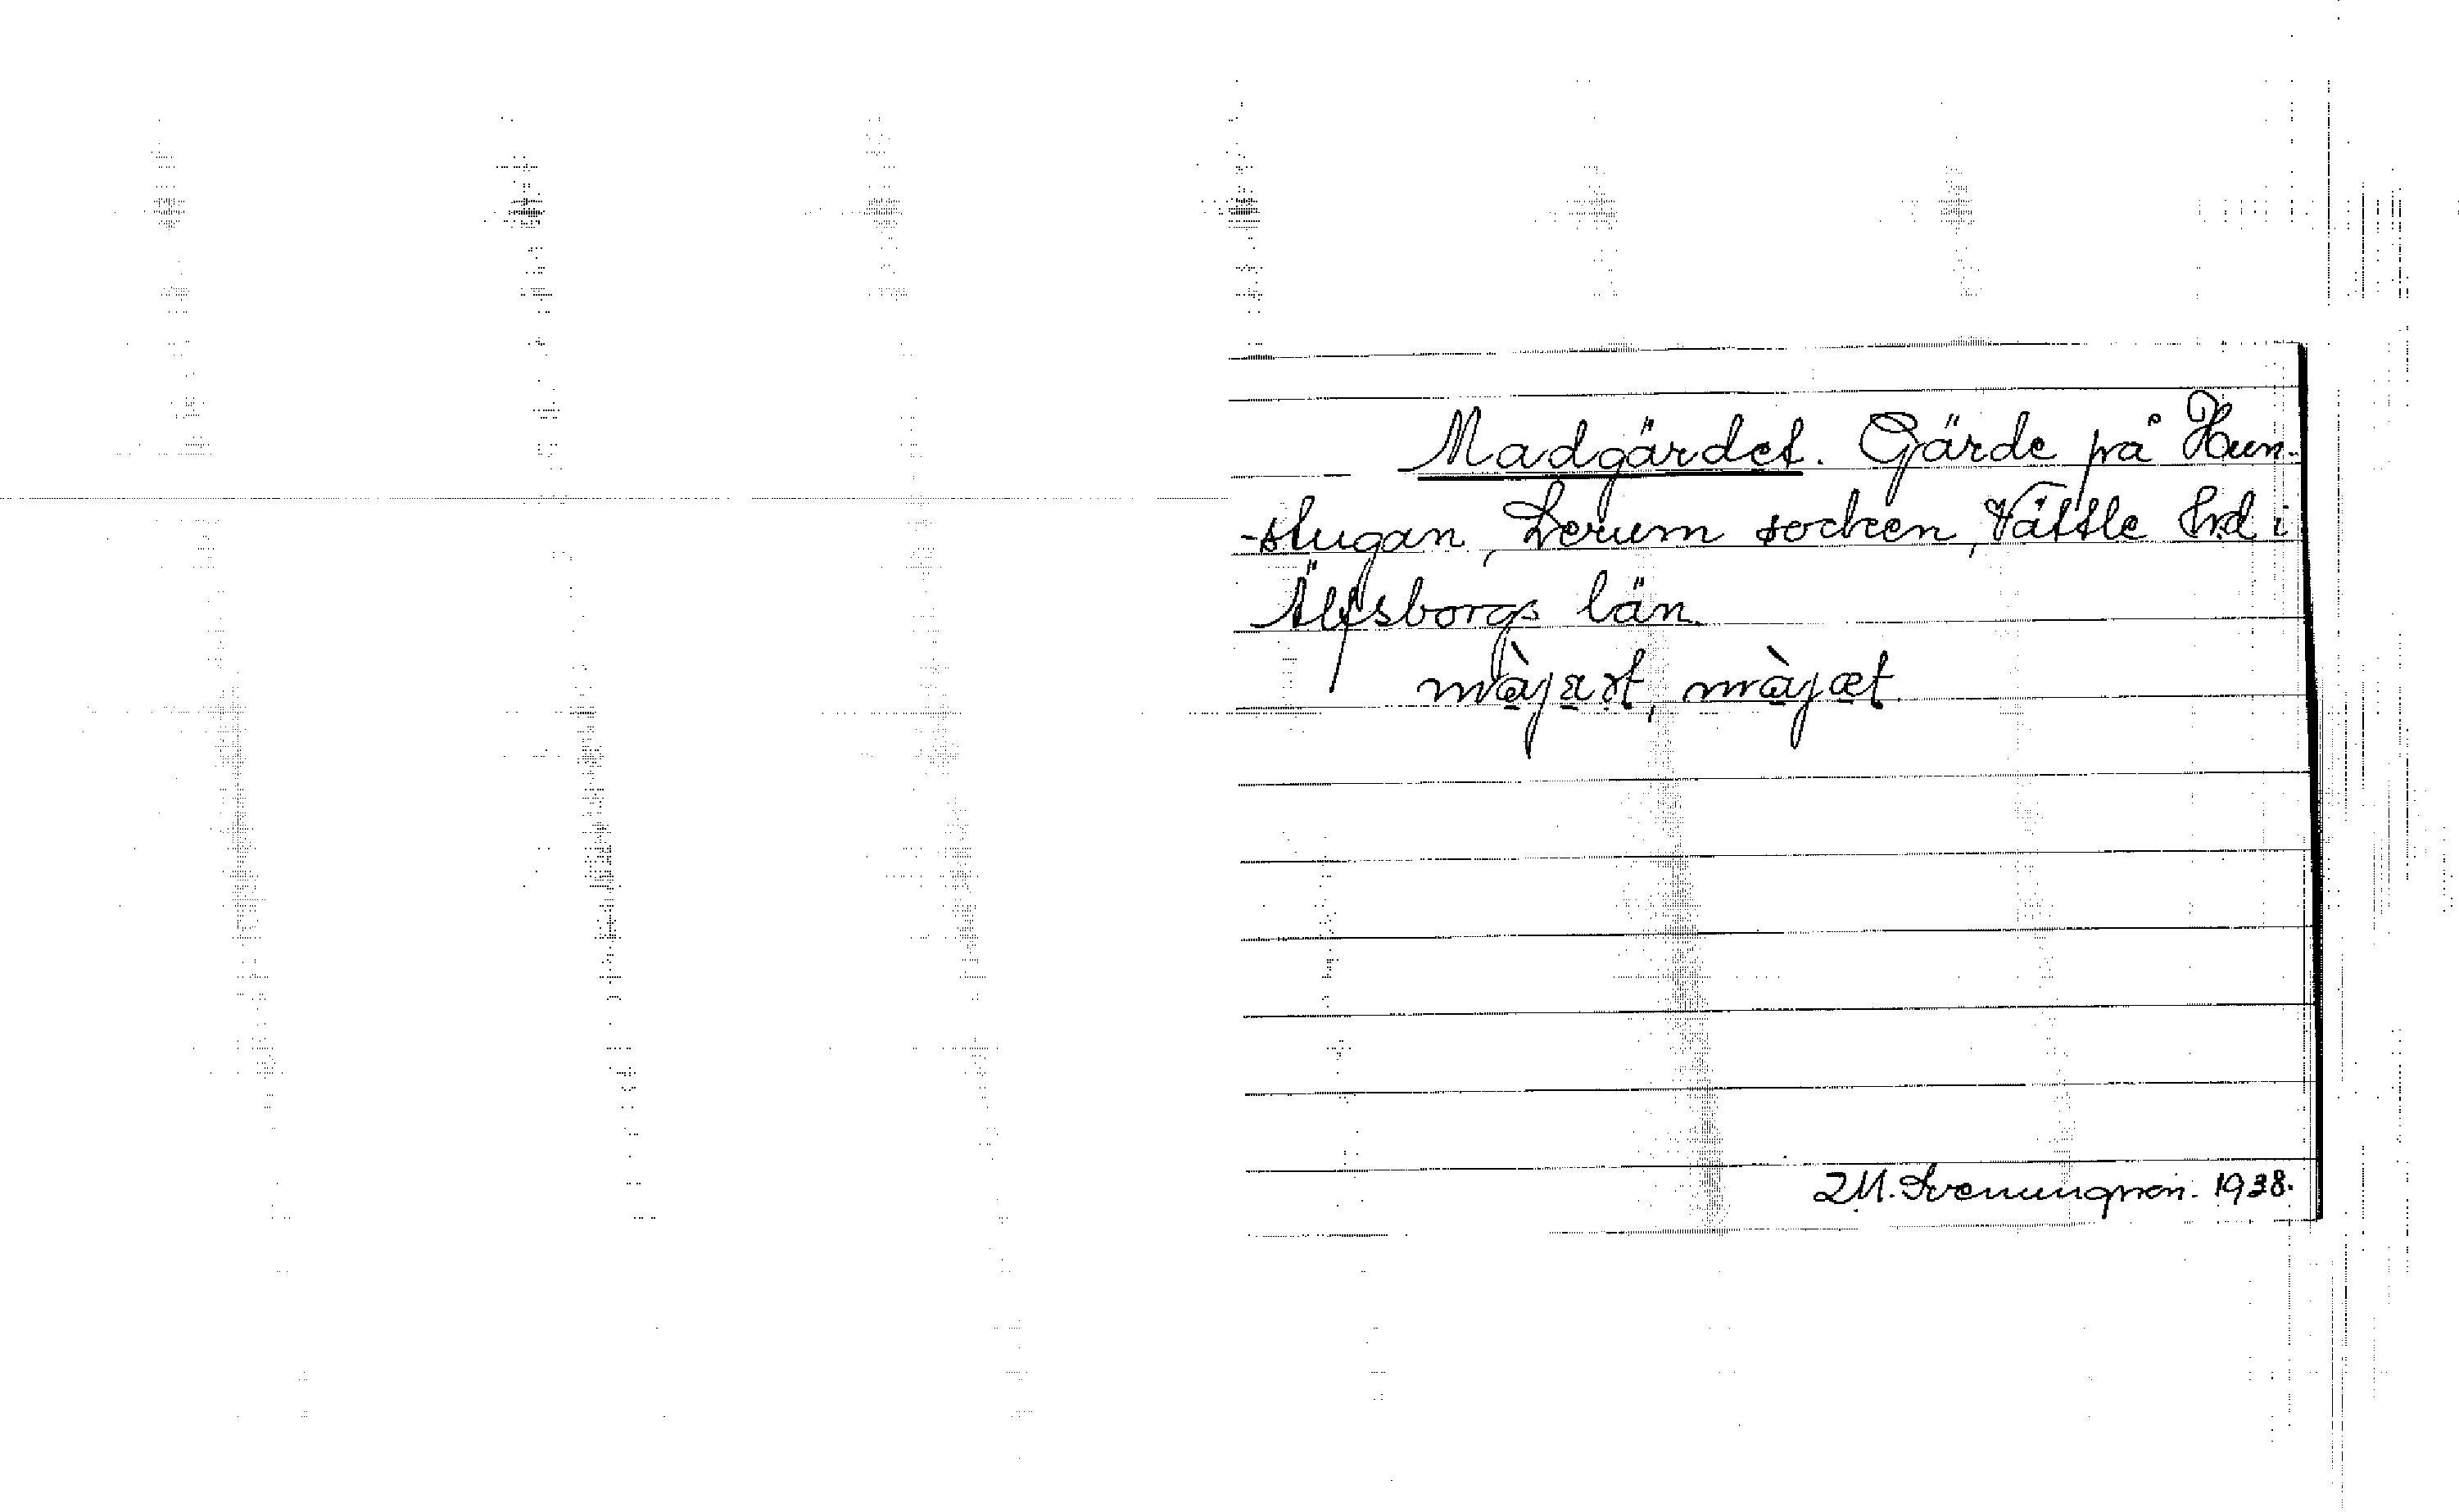 Madgärdet. Gärde på Hun-
-stugan, Lerum socken, Vättle hd i
Älfsborgs län.
màjaṛt, màjæt
M. Svenungson. 1938.